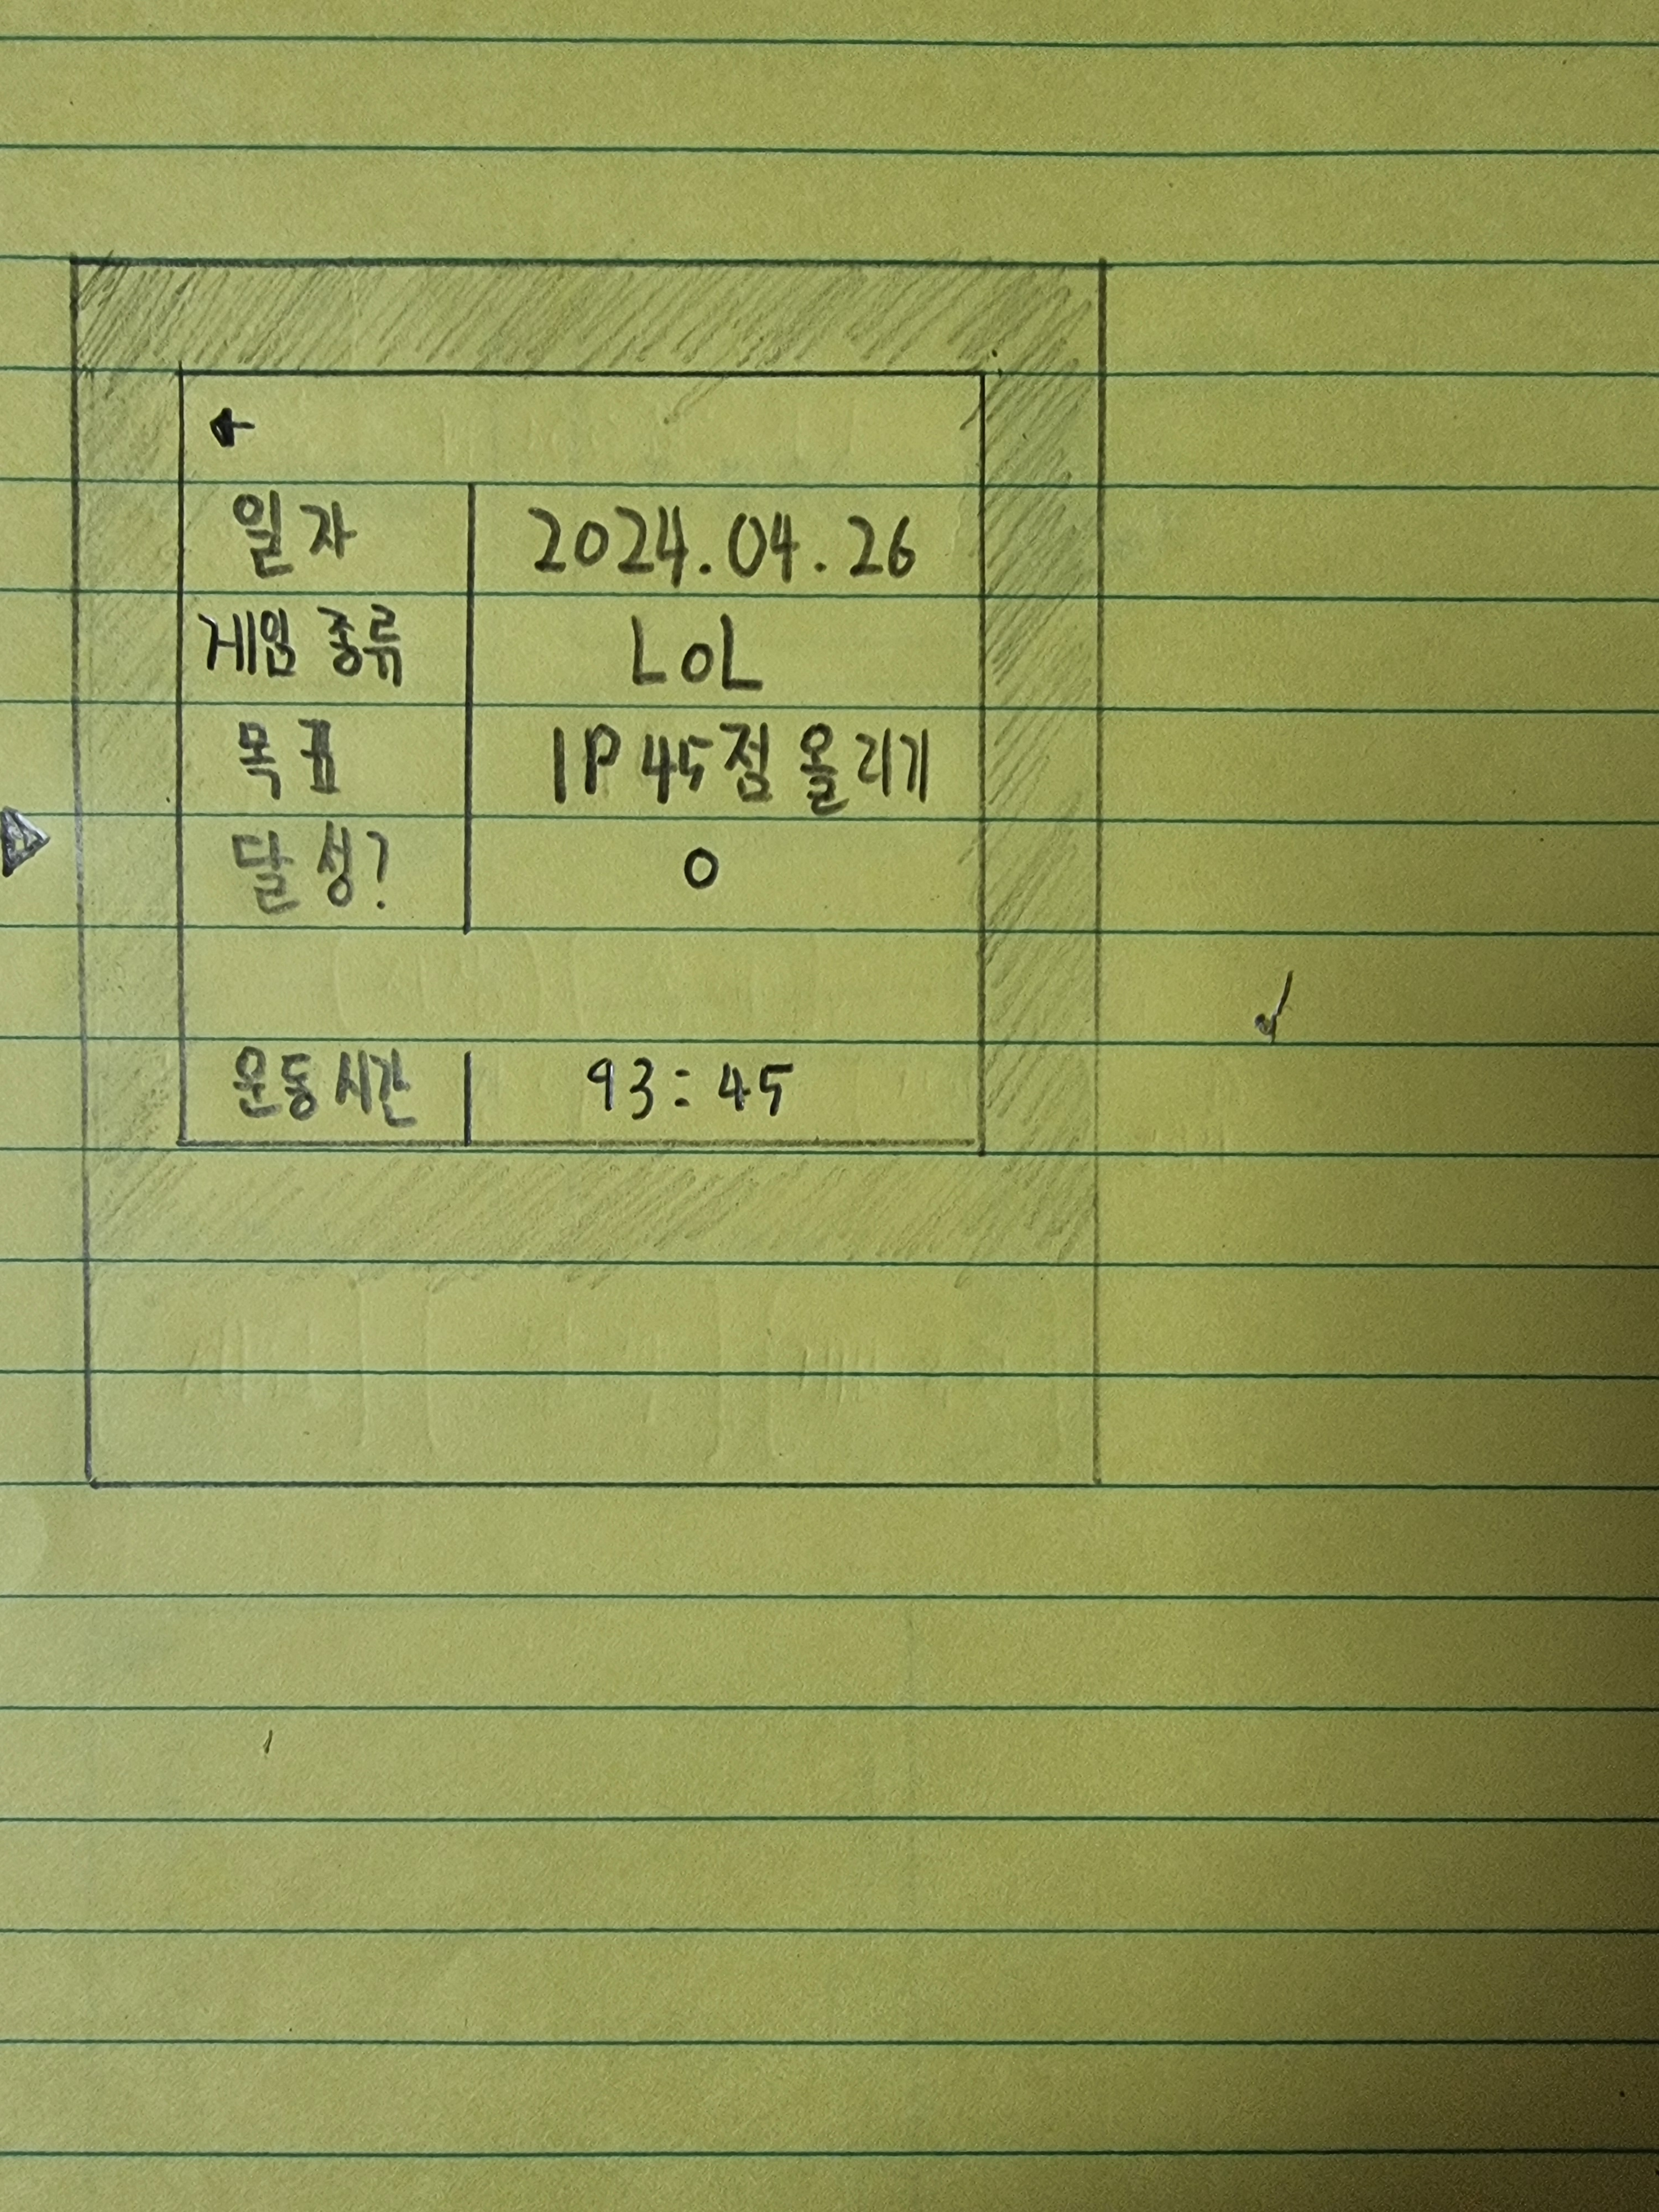 ←
일자 2024.04.26
게임 종류 LOL
목표 IP 45점 올리기
달성? O
운동시간 93:45